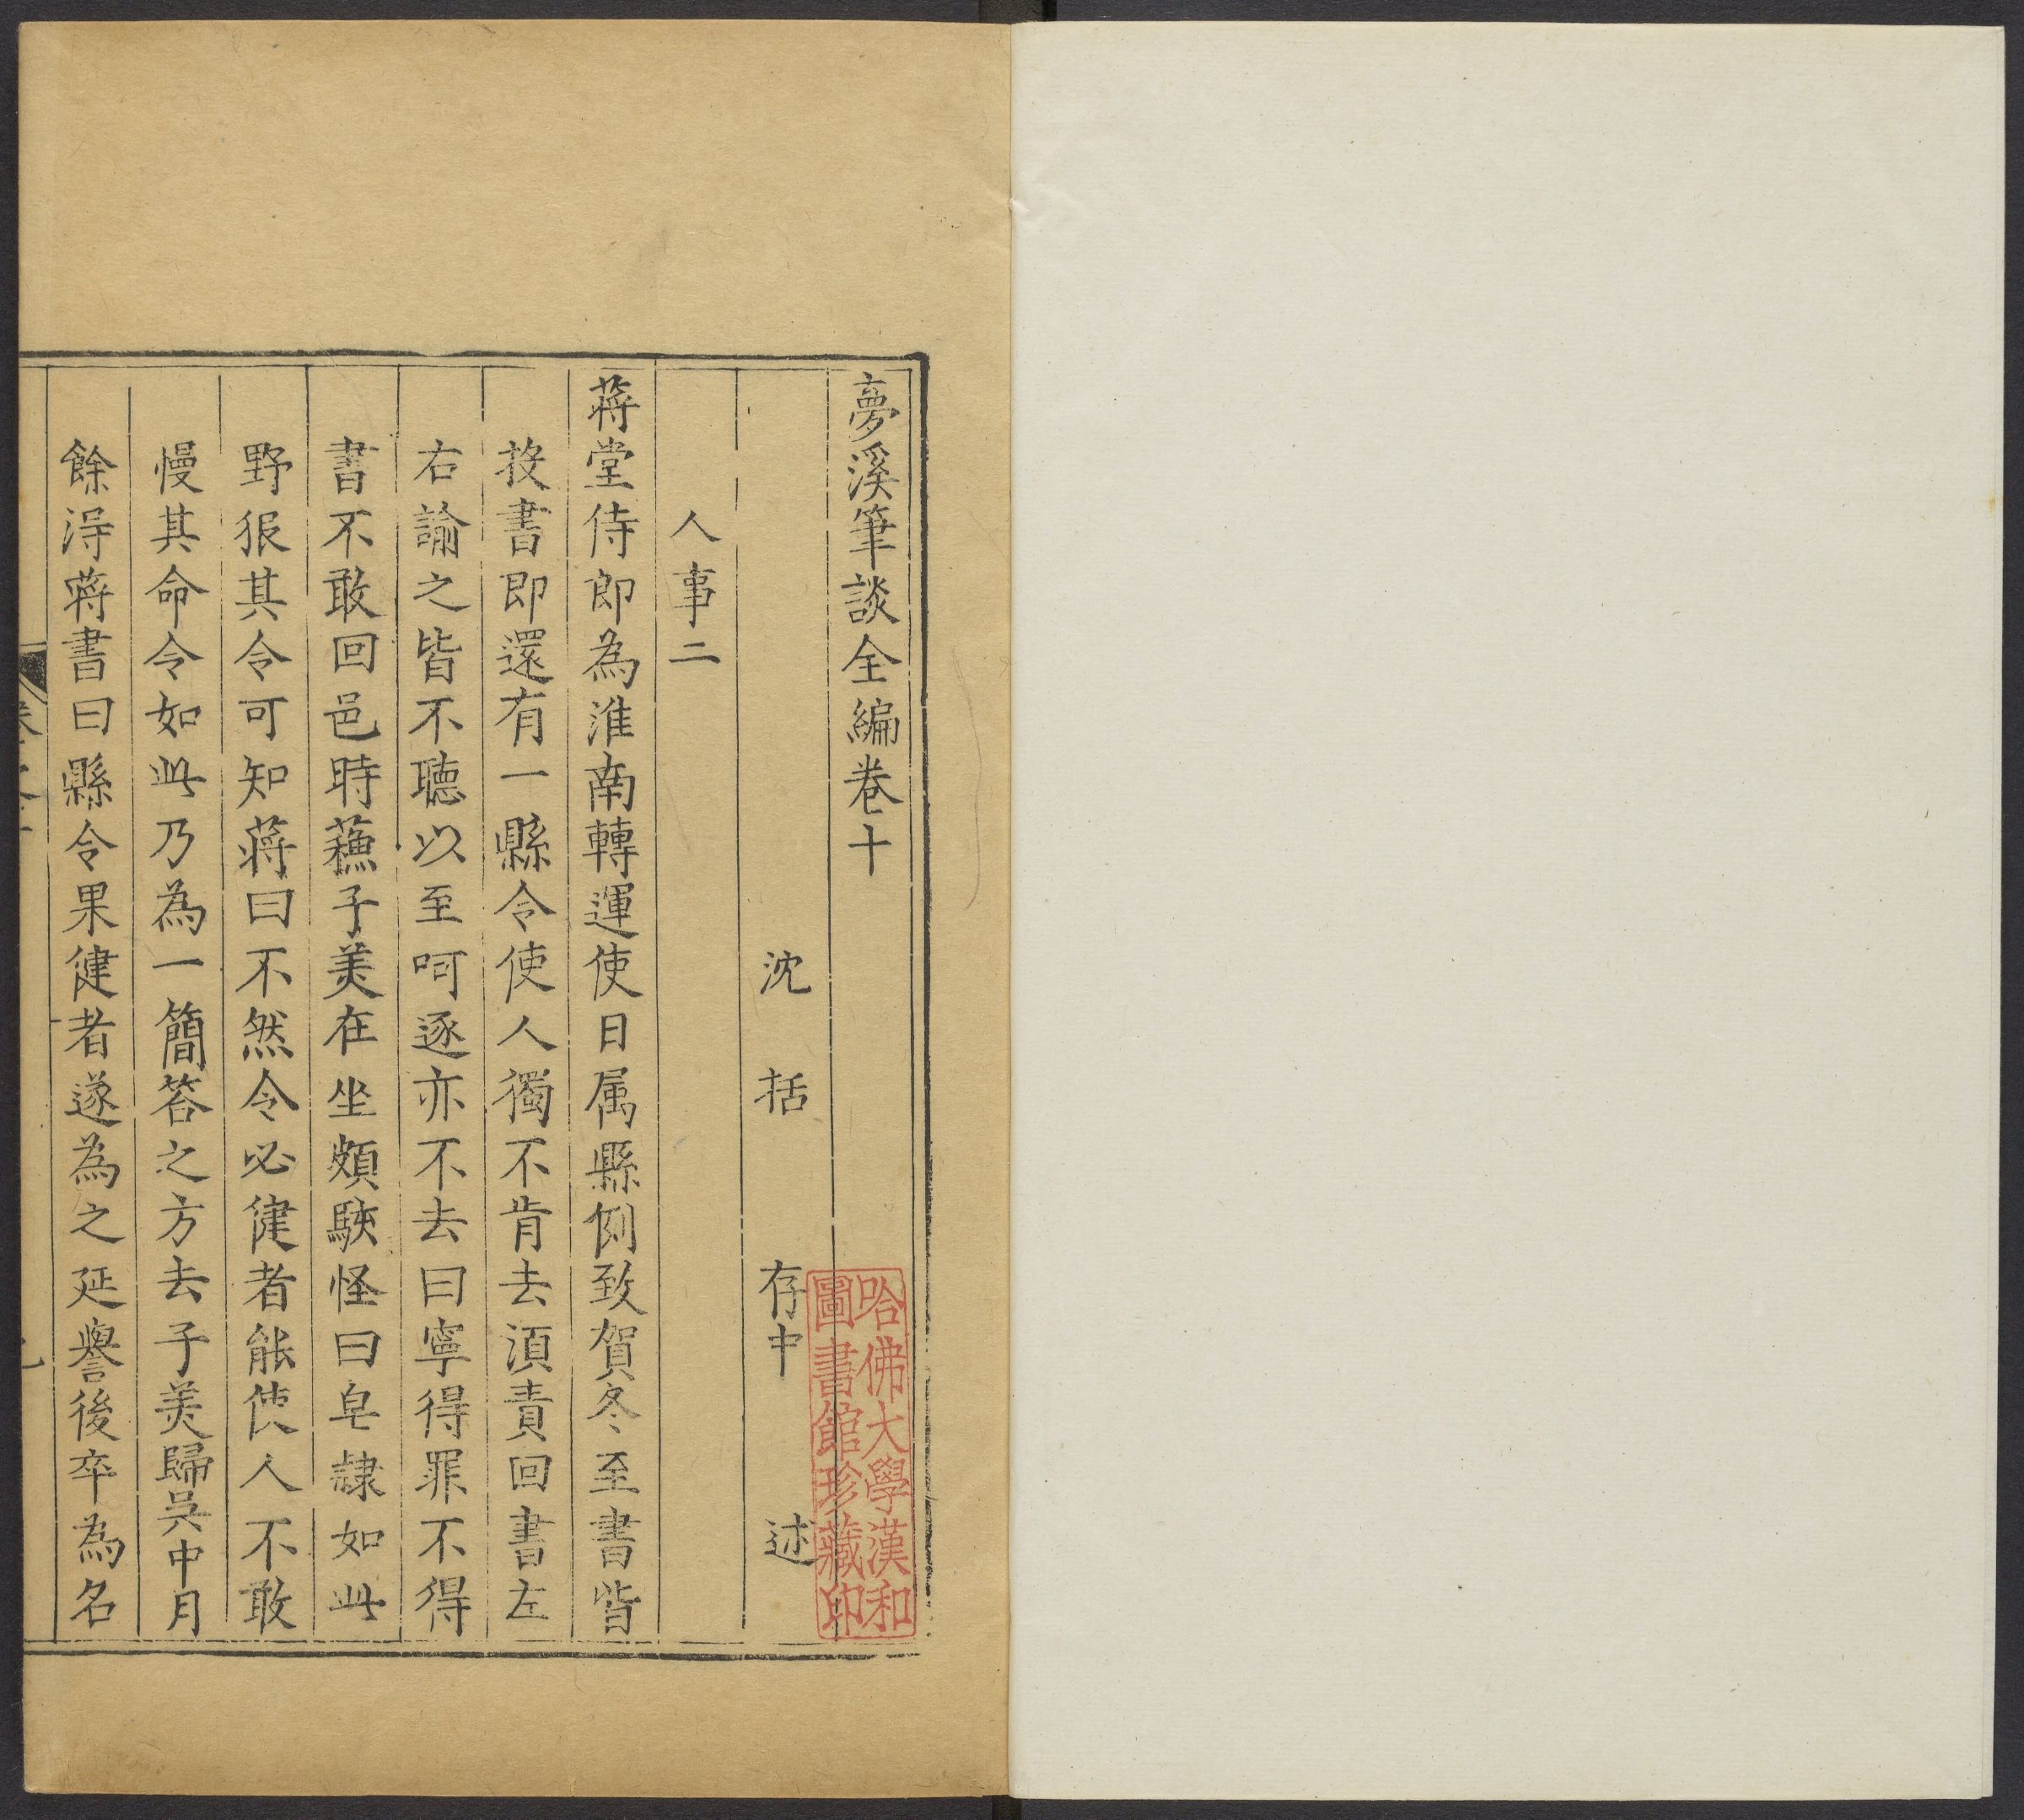 夢溪筆談全編卷十
沈括存中述
人事二
蔣堂侍郎為淮南轉運使日属縣例致賀冬至書皆
投書即還有一縣令使人獨不肯去湏責回書左
右諭之皆不聽以至呵逐亦不去曰寧得罪不得
書不敢回邑時蘓子美在坐頗駭怪曰皂隷如此
野狠其令可知蔣曰不然令必健者能使人不敢
慢其命令如此乃為一簡答之方去子美歸吳中月
餘淂蔣書曰縣令果健者遂為之延譽後卒為名
哈佛大學漢和
圖書館珍藏印